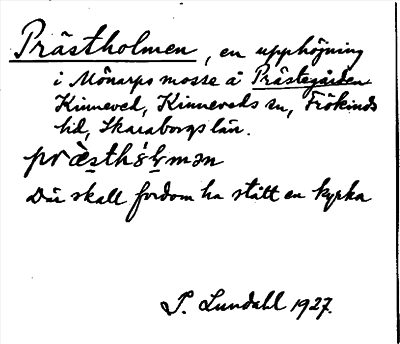 Prästholmen, en upphöjning
i Mönarps mosse å Prästegården
Kinneved, Kinneveds sn, Frökinds
hd, Skaraborgs län.
præ̀sthó̀lmən
Där skall fordom ha stått en kyrka
P. Lundahl 1927.